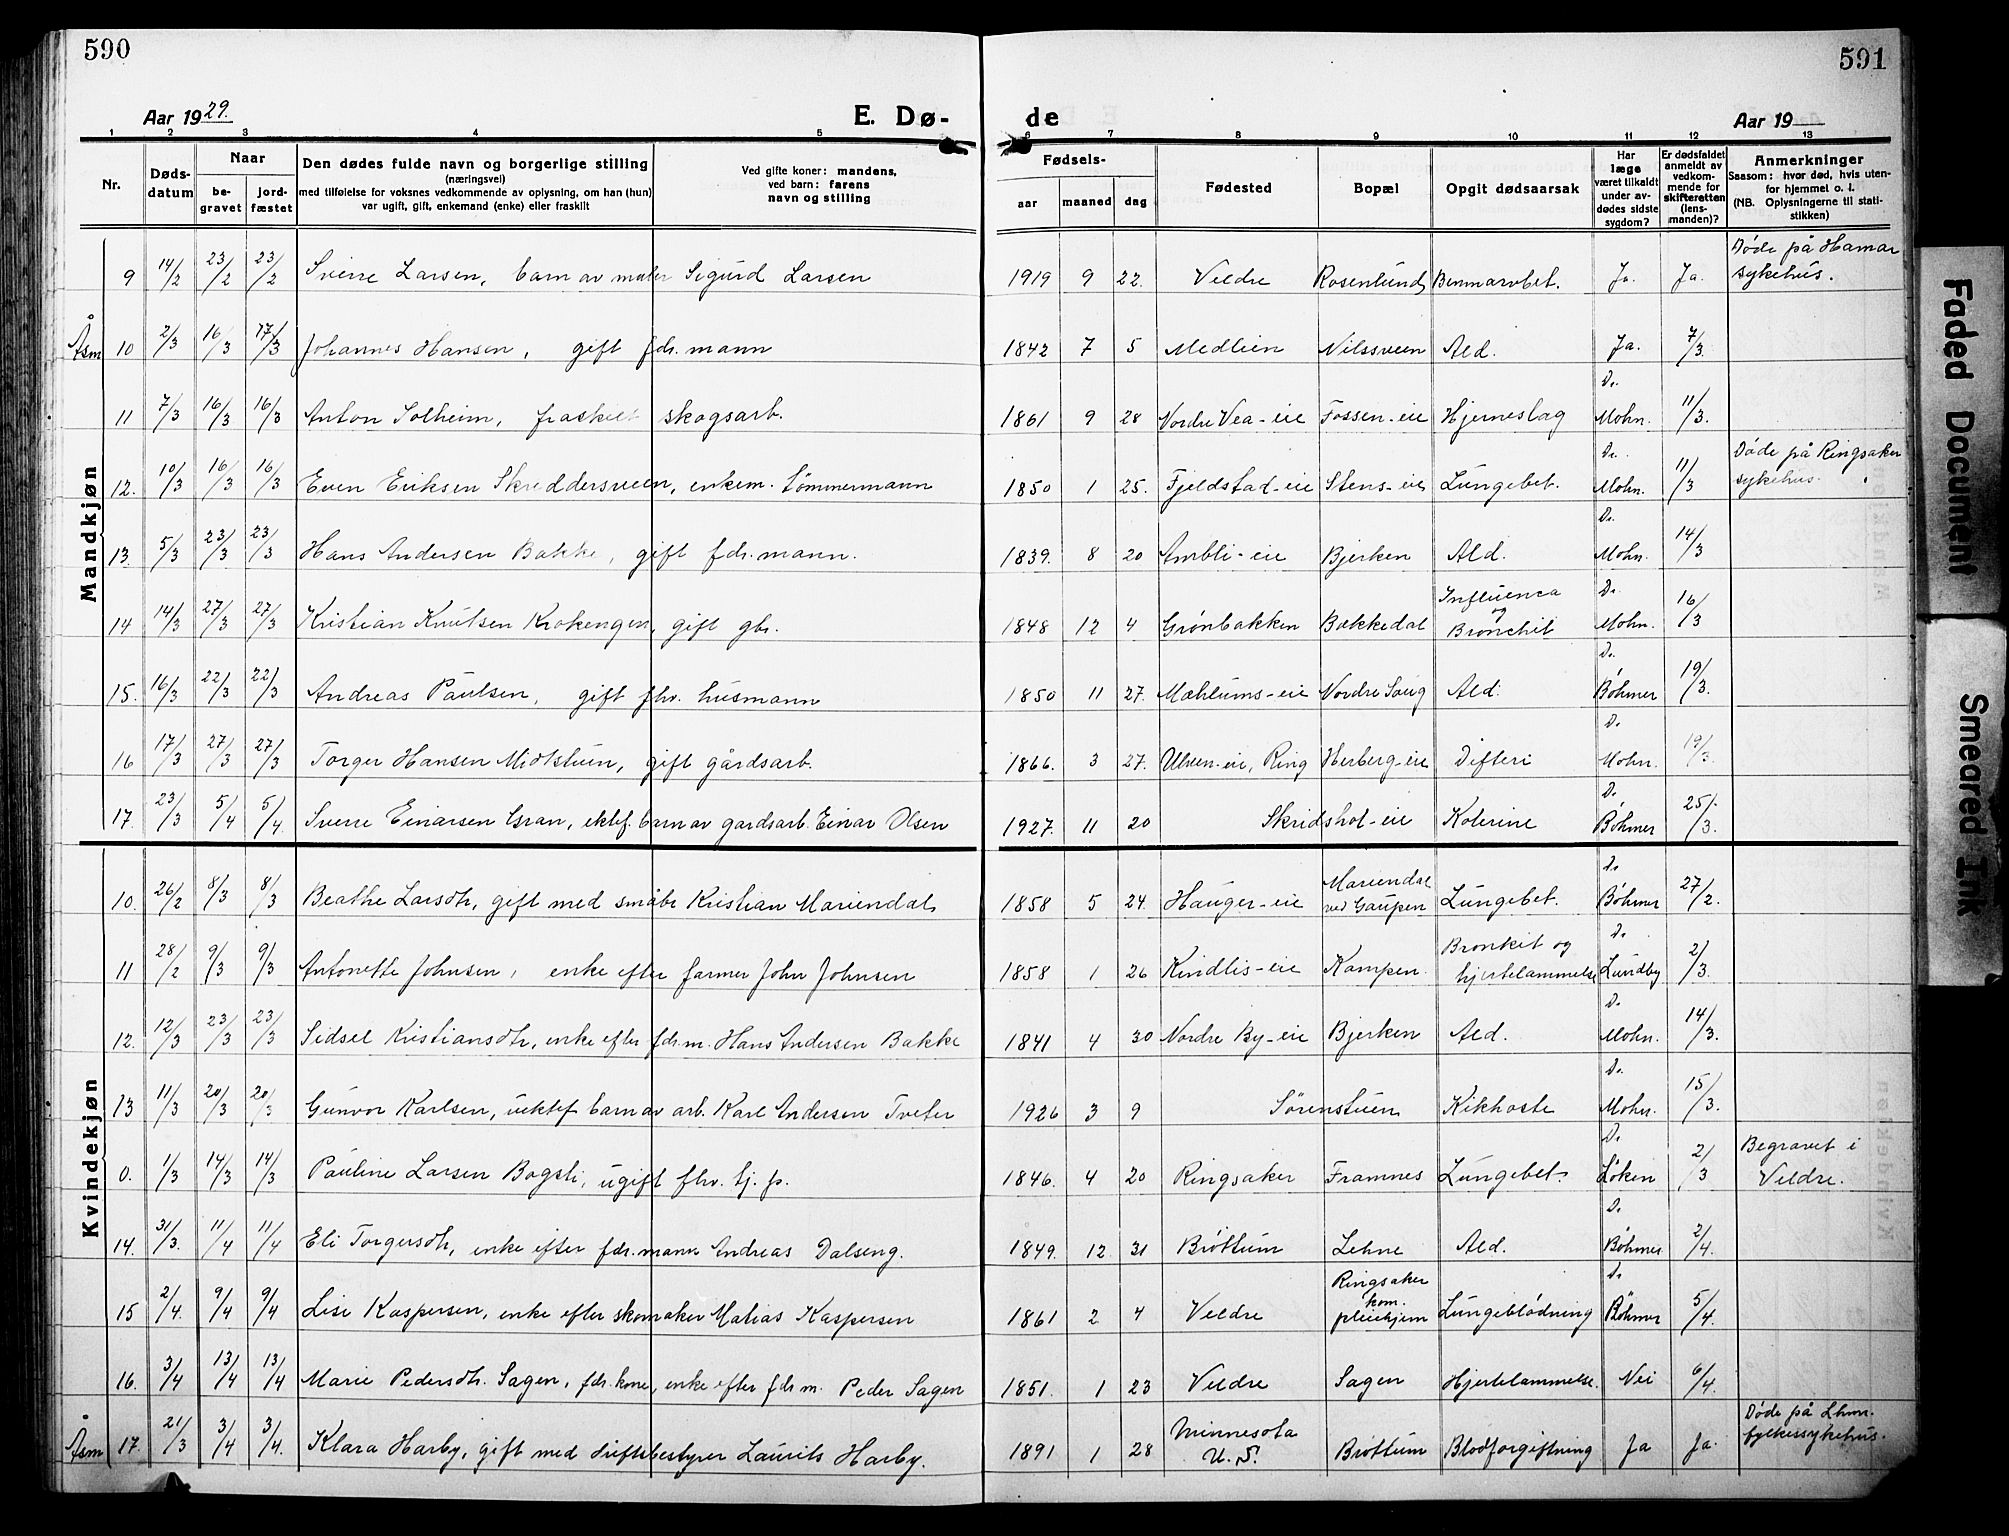 590
591
Aar 1929.
E. Dø-
de
Aar 19
1 2 3 4 5 6 7 8 9 10 11 12 13
Nr.
Døds-
datum
Naar
be-
gravet
jord-
fæstet
Den dødes fulde navn og borgerlige stilling
(næringsvei)
med tilføielse for voksnes vedkommende av oplysning, om han (hun)
var ugift, gift, enkemand (enke) eller fraskilt
Ved gifte koner: mandens,
ved barn: farens
navn og stilling
Fødsels-
aar maaned dag
Fødested
Bopæl
Opgit dødsaarsak
Har
læge
været tilkaldt
under av-
dødes sidste
sygdom?
Er dødsfaldet
anmeldt av
vedkom-
mende for
skifteretten
(lens-
manden)?
Anmerkninger
Saasom: hvor død, hvis uten-
for hjemmet o. l.
(NB. Oplysningerne til stati-
stikken)
Mandkjøn
9 14/2 23/2 23/2 Sverre Larsen, barn av maler Sigurd Larsen 1919 9 22. Veldre Rosenlund Benmarvbet. Ja. Ja. Døde på Hamar sykehus.
Åsm 10 2/3 16/3 17/3 Johannes Hansen, gift fdr. mann 1842 7 5 Medlien Nilssveen Ald. Ja. 7/3.
11 7/3 16/3 16/3 Anton Solheim, fraskilt skogsarb. 1861 9 28 Nordre Vea-eie Fossen-eie Hjerneslag Dr. Mohn. 11/3.
12. 10/3 16/3 16/3 Even Eriksen Skreddersveen, enkem. tømmermann 1850 1 25. Fjeldstad-eie Stens-eie Lungebet. Dr. Mohn. 11/3 Døde på Ringsaker sykehus.
13. 5/3 23/3 23/3 Hans Andersen Bakke, gift fdr. mann. 1839. 8 20 Ambli-eie Bjerken Ald. Dr. Mohn. 14/3
14 14/3 27/3 27/3 Kristian Knutsen Krakengen, gift gbr. 1848 12 4 Grønbakken Bakkedal Influenca og Bronchit Dr. Mohn. 16/3
15. 16/3 22/3 22/3 Andreas Paulsen, gift fhv. husmann 1850 11 27. Mæhlums-eie Nordre Saug Ald. Dr. Bøhmer 19/3.
16 17/3 27/3 27/3 Torger Hansen Midtstuen, gift gårdsarb. 1866. 3 27. Ulven-eie, Ring Herberg-eie Difteri Dr. Mohn. 19/3.
17. 23/3 5/4 5/4. Sverre Einarsen Gran, ektef. barn av gardsarb. Einar Olsen 1927. 11 20 Skridshol-eie Kolerine Dr. Bøhmer 25/3.
Kvindekjøn
10. 26/2 8/3 8/3 Beathe Larsdtr, gift med småbr Kristian Mariendal 1858 5 24. Hauger-eie Mariendal ved Gaupen Lungebet. Dr. Bøhmer 27/2.
11 28/2 9/3 9/3 Antonette Johnsen, enke efter farmer John Johnsen 1858 1 26 Kindlis-eie Kampen Bronkit og hjertelammelse Dr. Lundby 2/3.
12. 12/3 23/3 23/3 Sidsel Kristiansdtr, enke efter fdr. m. Hans Andersen Bakke 1841 4 30 Nordre By-eie Bjerken Ald. Dr. Mohn. 14/3.
13 11/3 20/3 20/3 Gunvor Karlsen, uektef barn av arb. Karl Andersen Tveter 1926 3 9 Sørenstuen Kikhoste Dr. Mohn. 15/3.
0. 1/3 14/3 14/3 Pauline Larsen Bagsti, ugift fhv. tj. p. 1846. 4 20 Ringsaker Framnes Lungebet. Dr. Løken 2/3 Begravet i Veldre.
14. 31/3. 11/4 11/4 Eli Torgersdtr, enke efter fdr. mann Andreas Dalseng. 1849. 12 31 Brøttum Lehne Ald. Dr. Bøhmer 2/4.
15 2/4. 9/4 9/4 Lise Kaspersen, enke efter skomaker Matias Kaspersen 1861 2 4 Veldre Ringsaker kom. pleiehjem Lungeblødning Dr. Bøhmer 5/4.
16. 3/4 13/4 13/4 Marie Pedersdtr. Sagen, fdr. kone, enke efter fdr m. Peder Sagen 1851. 1 23 Veldre Sagen Hjertelammelse. Nei 6/4.
Åsm 17. 21/3 3/4 3/4. Klara Harby, gift med driftsbestyrer Laurits Harby. 1891 1 28 Minnesota U. S. Brøttum Blodforgiftning Ja Ja. Døde på Lhmr. fylkessykehus.
Faded Document
Smeared Ink